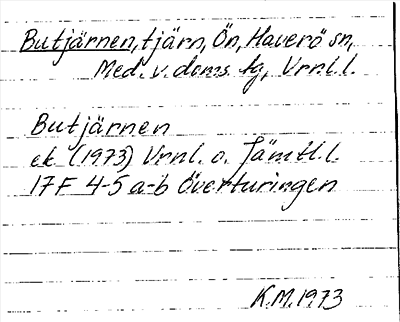 Butjärnen, tjärn, Ön, Haverö sn,
Med. v. doms. tg, Vrnl. l.
Butjärnen
ek (1973) Vrnl. o. Jämtl. l.
17F 4-5 a-b Överturingen
K.M. 1973